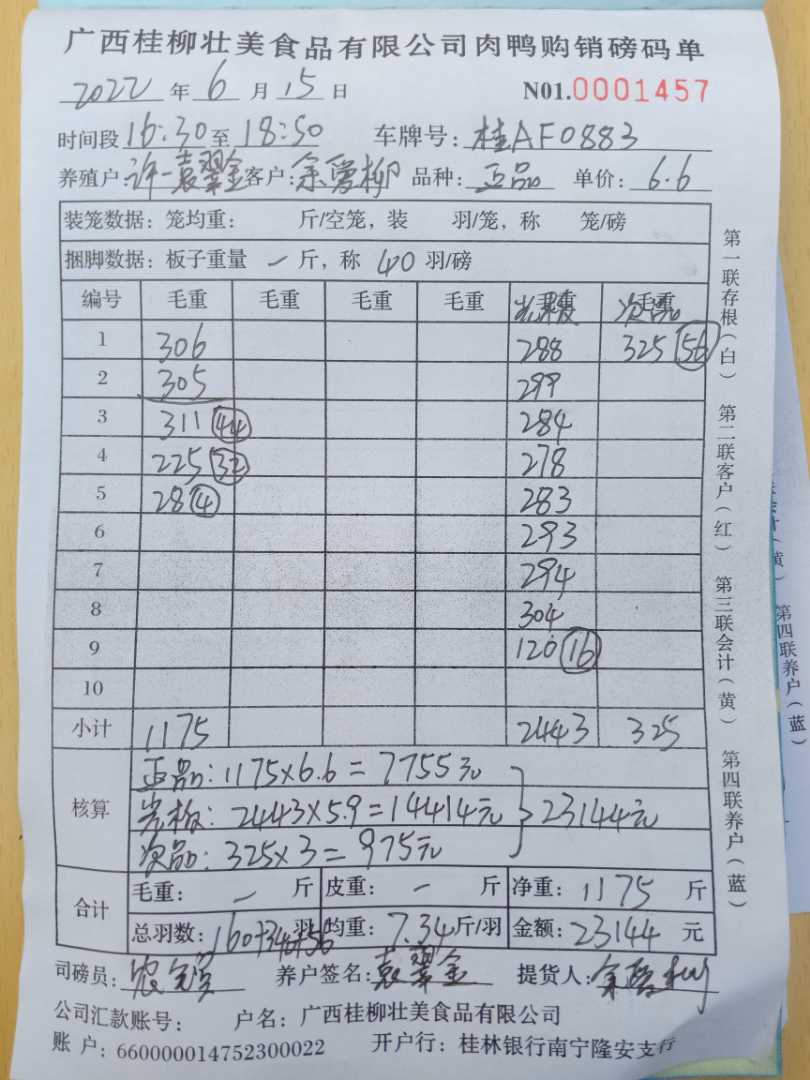 广西桂柳壮美食品有限公司肉鸭购销磅码单
2022 年 6 月 15 日 N01.0001457
时间段 16:30 至 18:50 车牌号: 桂AF0883
养殖户: 许一袁翠金 客户: 余爱柳 品种: 正品 单价: 6.6
装笼数据: 笼均重: 斤/空笼, 装 羽/笼, 称 笼/磅
捆脚数据: 板子重量 一 斤, 称 40 羽/磅
编号 毛重 毛重 毛重 毛重 毛重 光板 毛重 次品
1 306 288 325 56
2 305 299
3 311 44 284
4 225 32 278
5 28 4 283
6 293
7 294
8 304
9 120 16
10
小计 1175 2443 325
核算
正品: 1175×6.6=7755元
光板: 2443×5.9=14414元 23144元
次品: 325×3=975元
合计
毛重: 一 斤 皮重: 一 斤 净重: 1175 斤
总羽数: 160+34+56 羽 均重: 7.34 斤/羽 金额: 23144 元
司磅员: 养户签名: 袁翠金 提货人: 余爱柳
公司汇款账号: 户名: 广西桂柳壮美食品有限公司
账 户: 660000014752300022 开户行: 桂林银行南宁隆安支行
第一联存根(白) 第二联客户(红) 第三联会计(黄) 第四联养户(蓝)
第四联养户(蓝)